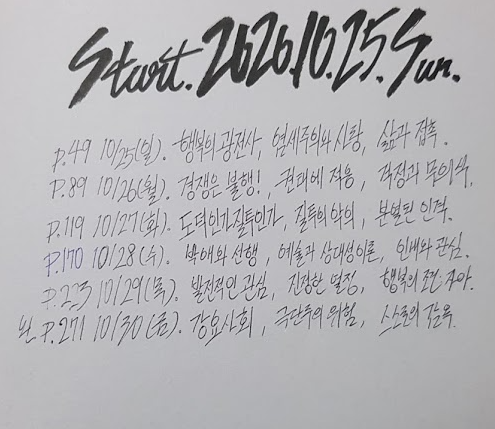 Start. 2020.10.25. Sun.
P.49 10/25(일). 행복의 광전사, 염세주의와 사랑, 삶과 접촉.
P.89 10/26(월). 경쟁은 불행!, 권태에 적응, 걱정과 무의식.
P.119 10/27(화). 도덕인가 질투인가, 질투의 악의, 분별된 인격.
P.170 10/28(수). 박애와 선행, 예술과 상대성이론, 인내와 관심.
P.223 10/29(목). 발전적인 관심, 진정한 열정, 행복의 조건: 자아.
완 P.271 10/30(금). 강요사회, 극단주의 위험, 스스로의